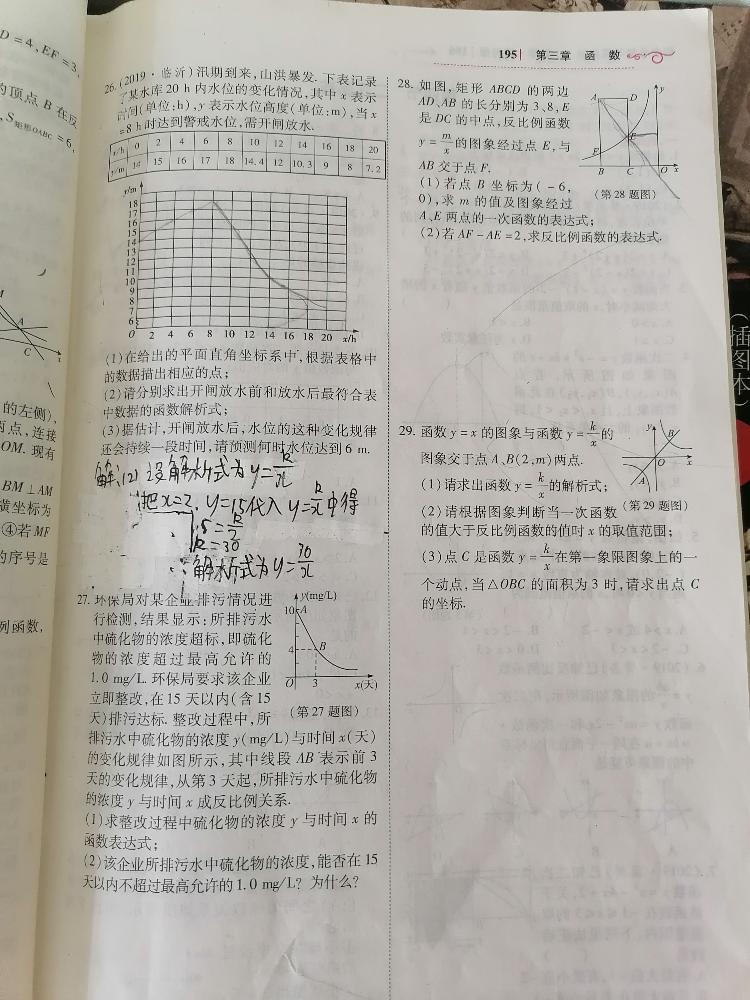 195 第三章 函 数
D=4,EF=3,
的顶点 B 在反
S矩形OABC=6,
A
C
x
的左侧),
两点,连接
OM. 现有
BM⊥AM
横坐标为
④若MF
的序号是
例函数,
26.(2019·临沂)汛期到来,山洪暴发.下表记录
了某水库20 h内水位的变化情况,其中x表示
时间(单位:h),y表示水位高度(单位:m),当x
=8 h时达到警戒水位,需开闸放水.
x/h 0 2 4 6 8 10 12 14 16 18 20
y/m 14 15 16 17 18 14.4 12 10.3 9 8 7.2
y/m
18
17
16
15
14
13
12
11
10
9
8
7
6
O 2 4 6 8 10 12 14 16 18 20 x/h
(1)在给出的平面直角坐标系中,根据表格中
的数据描出相应的点;
(2)请分别求出开闸放水前和放水后最符合表
中数据的函数解析式;
(3)据估计,开闸放水后,水位的这种变化规律
还会持续一段时间,请预测何时水位达到6 m.
解:(2)设解析式为y=k/x
把x=2,y=15代入y=k/x中得
15=k/2
k=30
∴解析式为y=30/x
27.环保局对某企业排污情况进
行检测,结果显示:所排污水
中硫化物的浓度超标,即硫化
物的浓度超过最高允许的
1.0 mg/L.环保局要求该企业
立即整改,在15天以内(含15
天)排污达标.整改过程中,所
排污水中硫化物的浓度y(mg/L)与时间x(天)
的变化规律如图所示,其中线段AB表示前3
天的变化规律,从第3天起,所排污水中硫化物
的浓度y与时间x成反比例关系.
(1)求整改过程中硫化物的浓度y与时间x的
函数表达式;
(2)该企业所排污水中硫化物的浓度,能否在15
天以内不超过最高允许的1.0 mg/L?为什么?
y(mg/L)
10 A
4 B
O 3 x(天)
(第27题图)
28.如图,矩形ABCD的两边
AD、AB的长分别为3、8,E
是DC的中点,反比例函数
y=m/x的图象经过点E,与
AB交于点F.
(1)若点B坐标为(-6,
0),求m的值及图象经过
A、E两点的一次函数的表达式;
(2)若AF-AE=2,求反比例函数的表达式.
y
A D
E
F
B C O x
(第28题图)
29.函数y=x的图象与函数y=k/x的
图象交于点A、B(2,m)两点.
(1)请求出函数y=k/x的解析式;
(2)请根据图象判断当一次函数
的值大于反比例函数的值时x的取值范围;
(3)点C是函数y=k/x在第一象限图象上的一
个动点,当△OBC的面积为3时,请求出点C
的坐标.
y
B
O x
A
(第29题图)
(插图本)